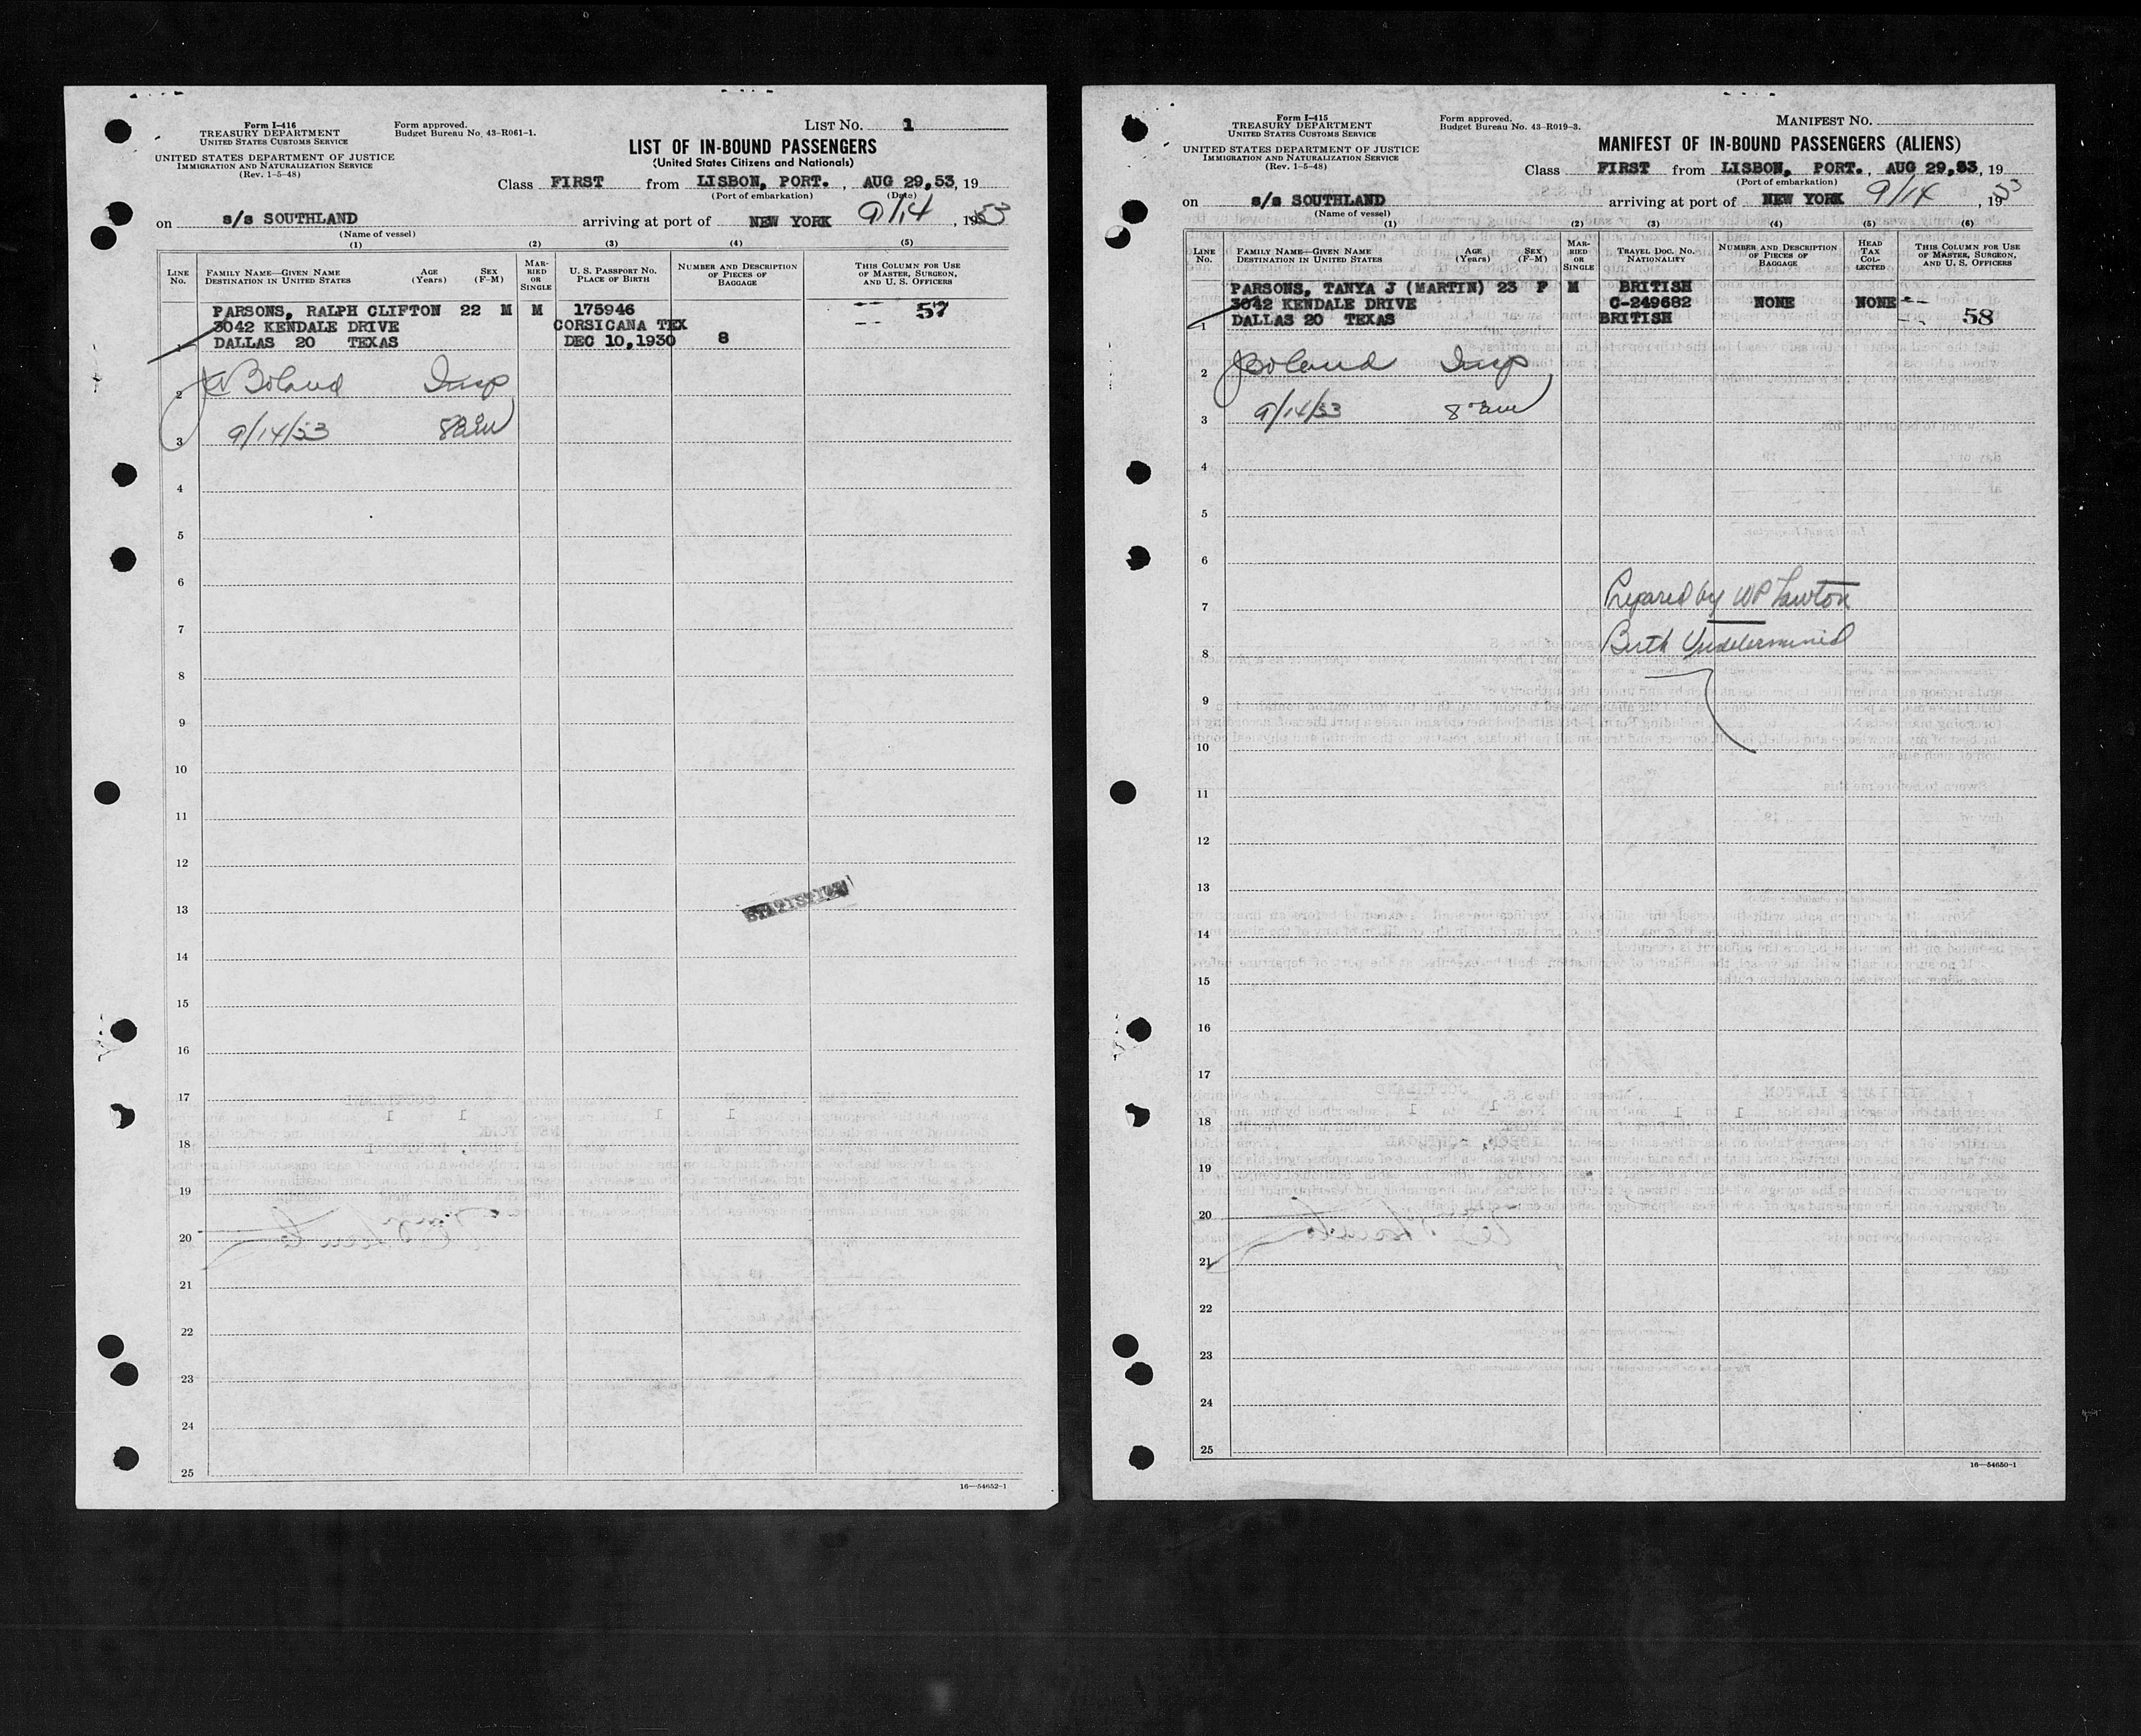 Form I-416
TREASURY DEPARTMENT
UNITED STATES CUSTOMS SERVICE
UNITED STATES DEPARTMENT OF JUSTICE
IMMIGRATION AND NATURALIZATION SERVICE
(Rev. 1-5-48)
Form approved.
Budget Bureau No. 43-R061-1.
LIST NO. 1
LIST OF IN-BOUND PASSENGERS
(United States Citizens and Nationals)
Class FIRST from LISBON, PORT., AUG 29,53, 19
(Port of embarkation) (Date)
on s/s SOUTHLAND arriving at port of NEW YORK 9/14, 1953
(Name of vessel)
(1) (2) (3) (4) (5)
LINE No. FAMILY NAME—GIVEN NAME DESTINATION IN UNITED STATES AGE (Years) SEX (F-M) MARRIED OR SINGLE U. S. PASSPORT NO. PLACE OF BIRTH NUMBER AND DESCRIPTION OF PIECES OF BAGGAGE THIS COLUMN FOR USE OF MASTER, SURGEON, AND U. S. OFFICERS
PARSONS, RALPH CLIFTON 22 M M 175946 57
3042 KENDALE DRIVE CORSICANA TEX
1 DALLAS 20 TEXAS DEC 10,1930 8
2 Boland Insp
3 9/14/53
4
5
6
7
8
9
10
11
12
13 STATISTICS
14
15
16
17
18
19
20
21
22
23
24
25
16—54652-1
Form I-415
TREASURY DEPARTMENT
UNITED STATES CUSTOMS SERVICE
UNITED STATES DEPARTMENT OF JUSTICE
IMMIGRATION AND NATURALIZATION SERVICE
(Rev. 1-5-48)
Form approved.
Budget Bureau No. 43-R019-3.
MANIFEST NO.
MANIFEST OF IN-BOUND PASSENGERS (ALIENS)
Class FIRST from LISBON, PORT., AUG 29,53, 19
(Port of embarkation)
on s/s SOUTHLAND arriving at port of NEW YORK 9/14, 1953
(Name of vessel)
(1) (2) (3) (4) (5) (6)
LINE No. FAMILY NAME—GIVEN NAME DESTINATION IN UNITED STATES AGE (Years) SEX (F-M) MARRIED OR SINGLE TRAVEL DOC. NO. NATIONALITY NUMBER AND DESCRIPTION OF PIECES OF BAGGAGE HEAD TAX COLLECTED THIS COLUMN FOR USE OF MASTER, SURGEON, AND U. S. OFFICERS
PARSONS, TANYA J (MARTIN) 23 F M BRITISH
3042 KENDALE DRIVE C-249682 NONE NONE
1 DALLAS 20 TEXAS BRITISH 58
2 Boland Insp
3 9/14/53
4
5
6
7 Prepared by WP Lawton
8 Berth Undetermined
9
10
11
12
13
14
15
16
17
18
19
20
21
22
23
24
25
16—54650-1